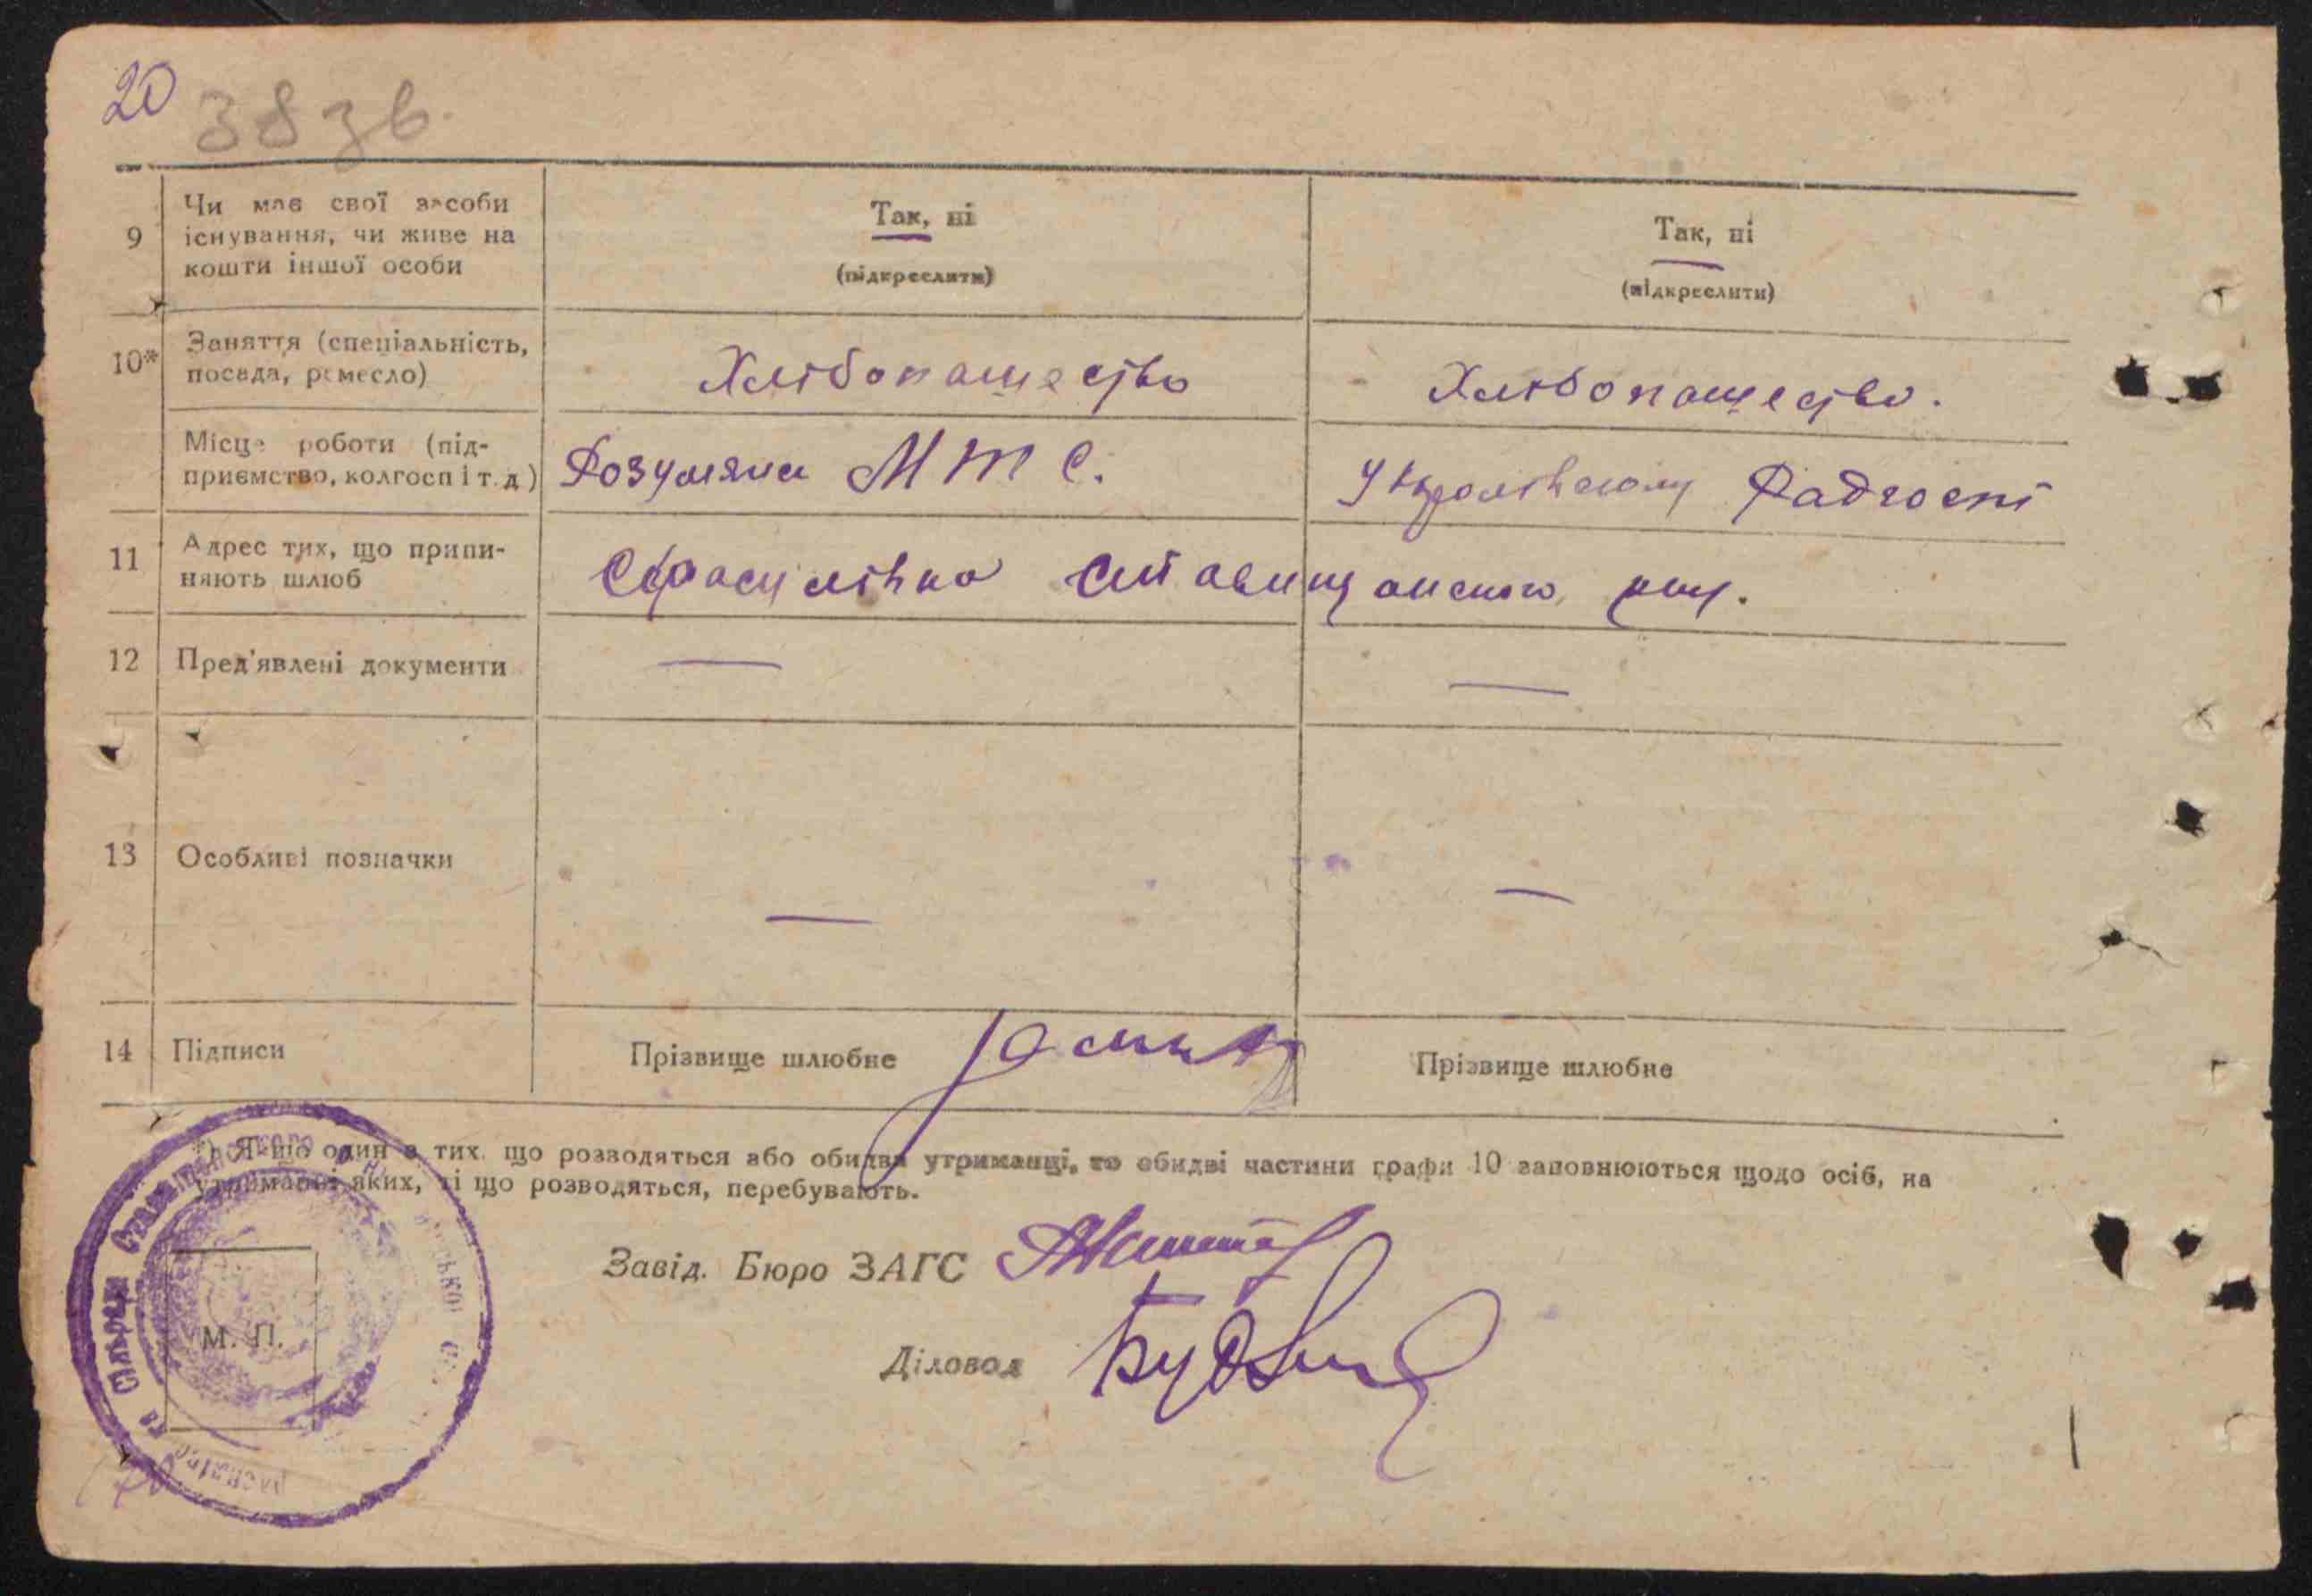 20
38 зв.
9
Чи має свої засоби
існування, чи живе на
кошти іншої особи
Так, ні
(підкреслити)
Так, ні
(підкреслити)
10*
Заняття (спеціальність,
посада, ремесло)
Хлібопашество
Хлібопашество.
Місце роботи (під-
приємство, колгосп і т. д)
М Т С.
У Радгоспі
11
Адрес тих, що припи-
няють шлюб
Ставищанского
12
Пред'явлені документи
—
—
13
Особливі позначки
—
—
14
Підписи
Прізвище шлюбне
Прізвище шлюбне
*) Якщо один з тих, що розводяться або обидва утриманці, то обидві частини графи 10 заповнюються щодо осіб, на
утриманні яких, ті що розводяться, перебувають.
Завід. Бюро ЗАГС
Діловод
М. П.